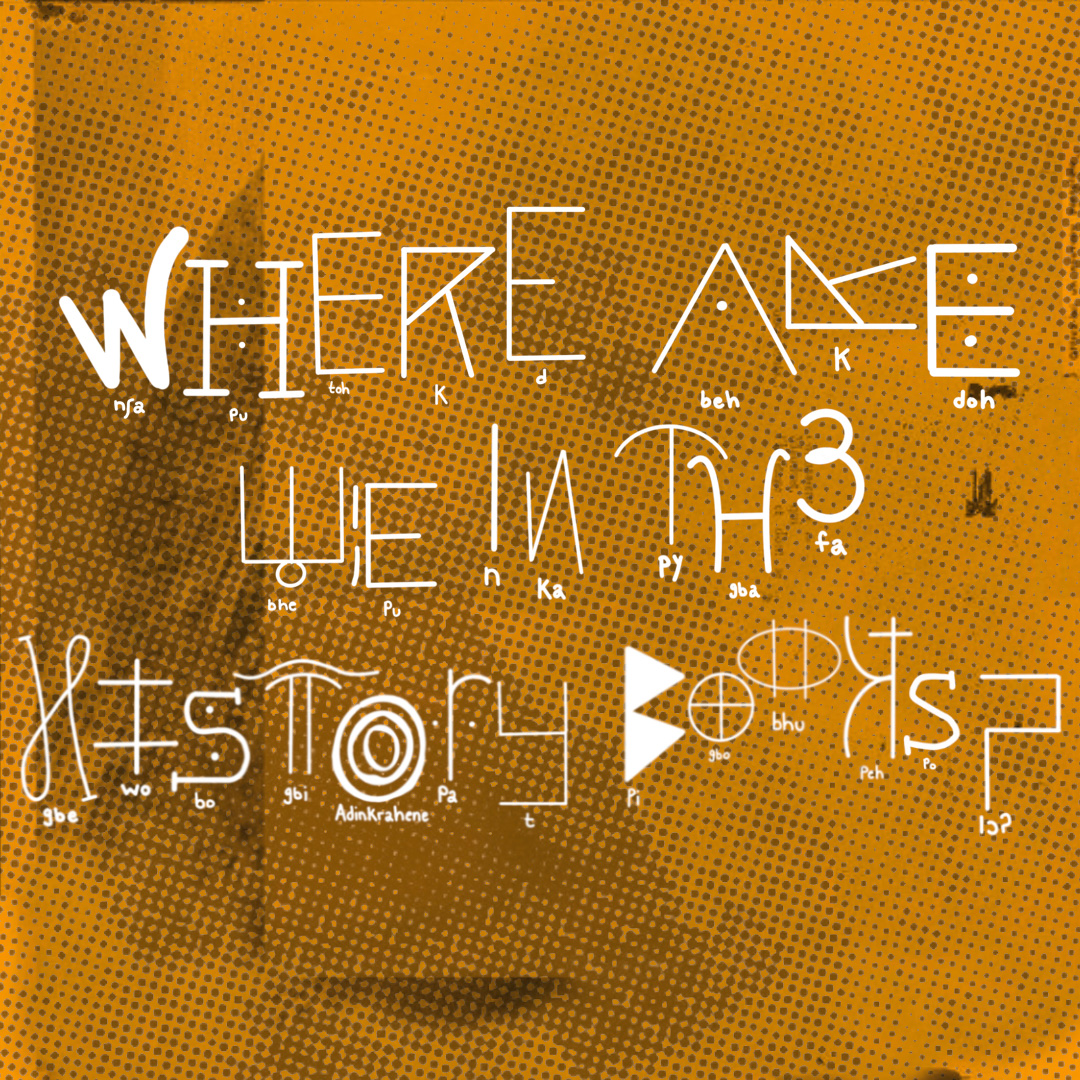 WHERE ARE
nʃa pu toh K d beh K doh
WE IN TH3
bhe pu n Ka py gba fa
HISTOrY BOOKS?
gbe wo bo gbi Adinkrahene Pa t Pi gbo bhu Peh Po lɔ?